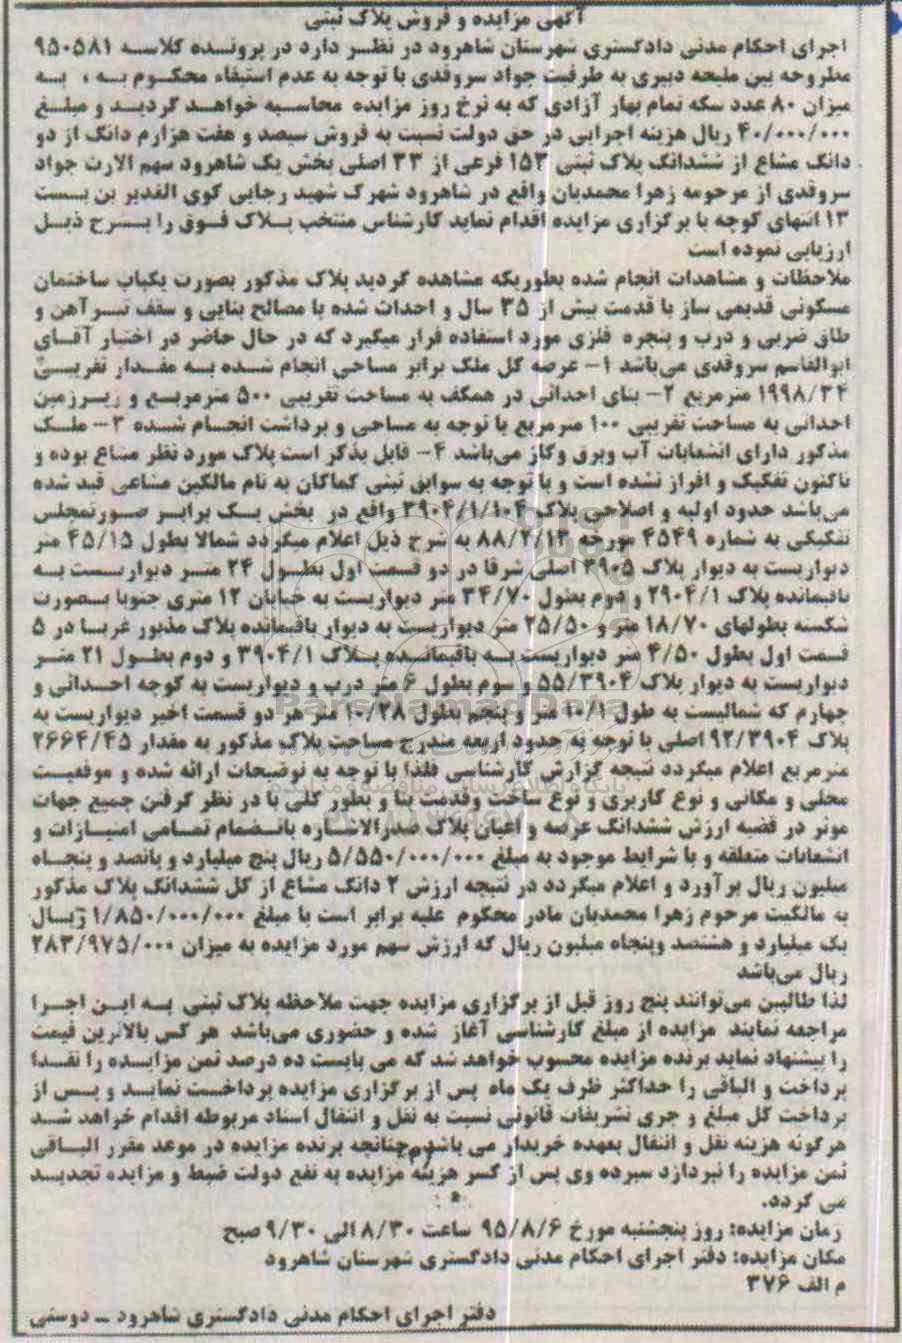 آگهی مزایده و فروش پلاک ثبتی
اجرای احکام مدنی دادگستری شهرستان شاهرود در نظر دارد در پرونده کلاسه ۹۵۰۵۸۱
مطروحه بین ملیحه دبیری به طرفیت جواد سروقدی با توجه به عدم استیفاء محکوم به ، به
میزان ۸۰ عدد سکه تمام بهار آزادی که به نرخ روز مزایده محاسبه خواهد گردید و مبلغ
۴۰/۰۰۰/۰۰۰ ریال هزینه اجرایی در حق دولت نسبت به فروش سیصد و هفت هزارم دانگ از دو
دانگ مشاع از ششدانگ پلاک ثبتی ۱۵۳ فرعی از ۳۳ اصلی بخش یک شاهرود سهم الارث جواد
سروقدی از مرحومه زهرا محمدیان واقع در شاهرود شهرک شهید رجایی کوی الغدیر بن بست
۱۳ انتهای کوچه با برگزاری مزایده اقدام نماید کارشناس منتخب پلاک فوق را بشرح ذیل
ارزیابی نموده است
ملاحظات و مشاهدات انجام شده بطوریکه مشاهده گردید پلاک مذکور بصورت یکباب ساختمان
مسکونی قدیمی ساز با قدمت بیش از ۳۵ سال و احداث شده با مصالح بنایی و سقف تیرآهن و
طاق ضربی و درب و پنجره فلزی مورد استفاده قرار میگیرد که در حال حاضر در اختیار آقای
ابوالقاسم سروقدی می‌باشد ۱- عرصه کل ملک برابر مساحی انجام شده به مقدار تقریبی
۱۹۹۸/۳۴ مترمربع ۲- بنای احداثی در همکف به مساحت تقریبی ۵۰۰ مترمربع و زیرزمین
احداثی به مساحت تقریبی ۱۰۰ مترمربع با توجه به مساحی و برداشت انجام شده ۳- ملک
مذکور دارای انشعابات آب وبرق وگاز می‌باشد ۴- قابل بذکر است پلاک مورد نظر مشاع بوده و
تاکنون تفکیک و افراز نشده است و با توجه به سوابق ثبتی کماکان به نام مالکین مشاعی قید شده
می‌باشد حدود اولیه و اصلاحی پلاک ۳۹۰۴/۱/۱۰۴ واقع در بخش یک برابر صورتمجلس
تفکیکی به شماره ۴۵۴۹ مورخه ۸۸/۲/۱۳ به شرح ذیل اعلام میگردد شمالا بطول ۴۵/۱۵ متر
دیواریست به دیوار پلاک ۳۹۰۵ اصلی شرقا در دو قسمت اول بطول ۲۴ متر دیواریست به
باقیمانده پلاک ۲۹۰۴/۱ و دوم بطول ۳۴/۷۰ متر دیواریست به خیابان ۱۲ متری جنوبا بصورت
شکسته بطولهای ۱۸/۷۰ متر و ۲۵/۵۰ متر دیواریست به دیوار باقیمانده پلاک مذبور غربا در ۵
قسمت اول بطول ۴/۵۰ متر دیواریست به باقیمانده پلاک ۳۹۰۴/۱ و دوم بطول ۲۱ متر
دیواریست به دیوار پلاک ۵۵/۳۹۰۴ و سوم بطول ۶ متر درب و دیواریست به کوچه احداثی و
چهارم که شمالیست به طول ۱۰/۱ متر و پنجم بطول ۱۰/۲۸ متر هر دو قسمت اخیر دیواریست به
پلاک ۹۲/۳۹۰۴ اصلی با توجه به حدود اربعه مندرج مساحت پلاک مذکور به مقدار ۲۶۶۴/۴۵
مترمربع اعلام میگردد نتیجه گزارش کارشناسی فلذا با توجه به توضیحات ارائه شده و موقعیت
محلی و مکانی و نوع کاربری و نوع ساخت وقدمت بنا و بطور کلی با در نظر گرفتن جمیع جهات
موثر در قضیه ارزش ششدانگ عرصه و اعیان پلاک صدرالاشاره بانضمام تمامی امتیازات و
انشعابات متعلقه و با شرایط موجود به مبلغ ۵/۵۵۰/۰۰۰/۰۰۰ ریال پنج میلیارد و پانصد و پنجاه
میلیون ریال برآورد و اعلام میگردد در نتیجه ارزش ۲ دانگ مشاع از کل ششدانگ پلاک مذکور
به مالکیت مرحوم زهرا محمدیان مادر محکوم علیه برابر است با مبلغ ۱/۸۵۰/۰۰۰/۰۰۰ ریال
یک میلیارد و هشتصد وپنجاه میلیون ریال که ارزش سهم مورد مزایده به میزان ۲۸۳/۹۷۵/۰۰۰
ریال می‌باشد
لذا طالبین می‌توانند پنج روز قبل از برگزاری مزایده جهت ملاحظه پلاک ثبتی به این اجرا
مراجعه نمایند مزایده از مبلغ کارشناسی آغاز شده و حضوری می‌باشد هر کس بالاترین قیمت
را پیشنهاد نماید برنده مزایده محسوب خواهد شد که می بایست ده درصد ثمن مزایده را نقدا
پرداخت و الباقی را حداکثر ظرف یک ماه پس از برگزاری مزایده پرداخت نماید و پس از
پرداخت کل مبلغ و جری تشریفات قانونی نسبت به نقل و انتقال اسناد مربوطه اقدام خواهد شد
هرگونه هزینه نقل و انتقال بعهده خریدار می باشد چنانچه برنده مزایده در موعد مقرر الباقی
ثمن مزایده را نپردازد سپرده وی پس از کسر هزینه مزایده به نفع دولت ضبط و مزایده تجدید
می گردد.
زمان مزایده: روز پنجشنبه مورخ ۹۵/۸/۶ ساعت ۸/۳۰ الی ۹/۳۰ صبح
مکان مزایده: دفتر اجرای احکام مدنی دادگستری شهرستان شاهرود
م الف ۳۷۶
دفتر اجرای احکام مدنی دادگستری شاهرود ــ دوستی